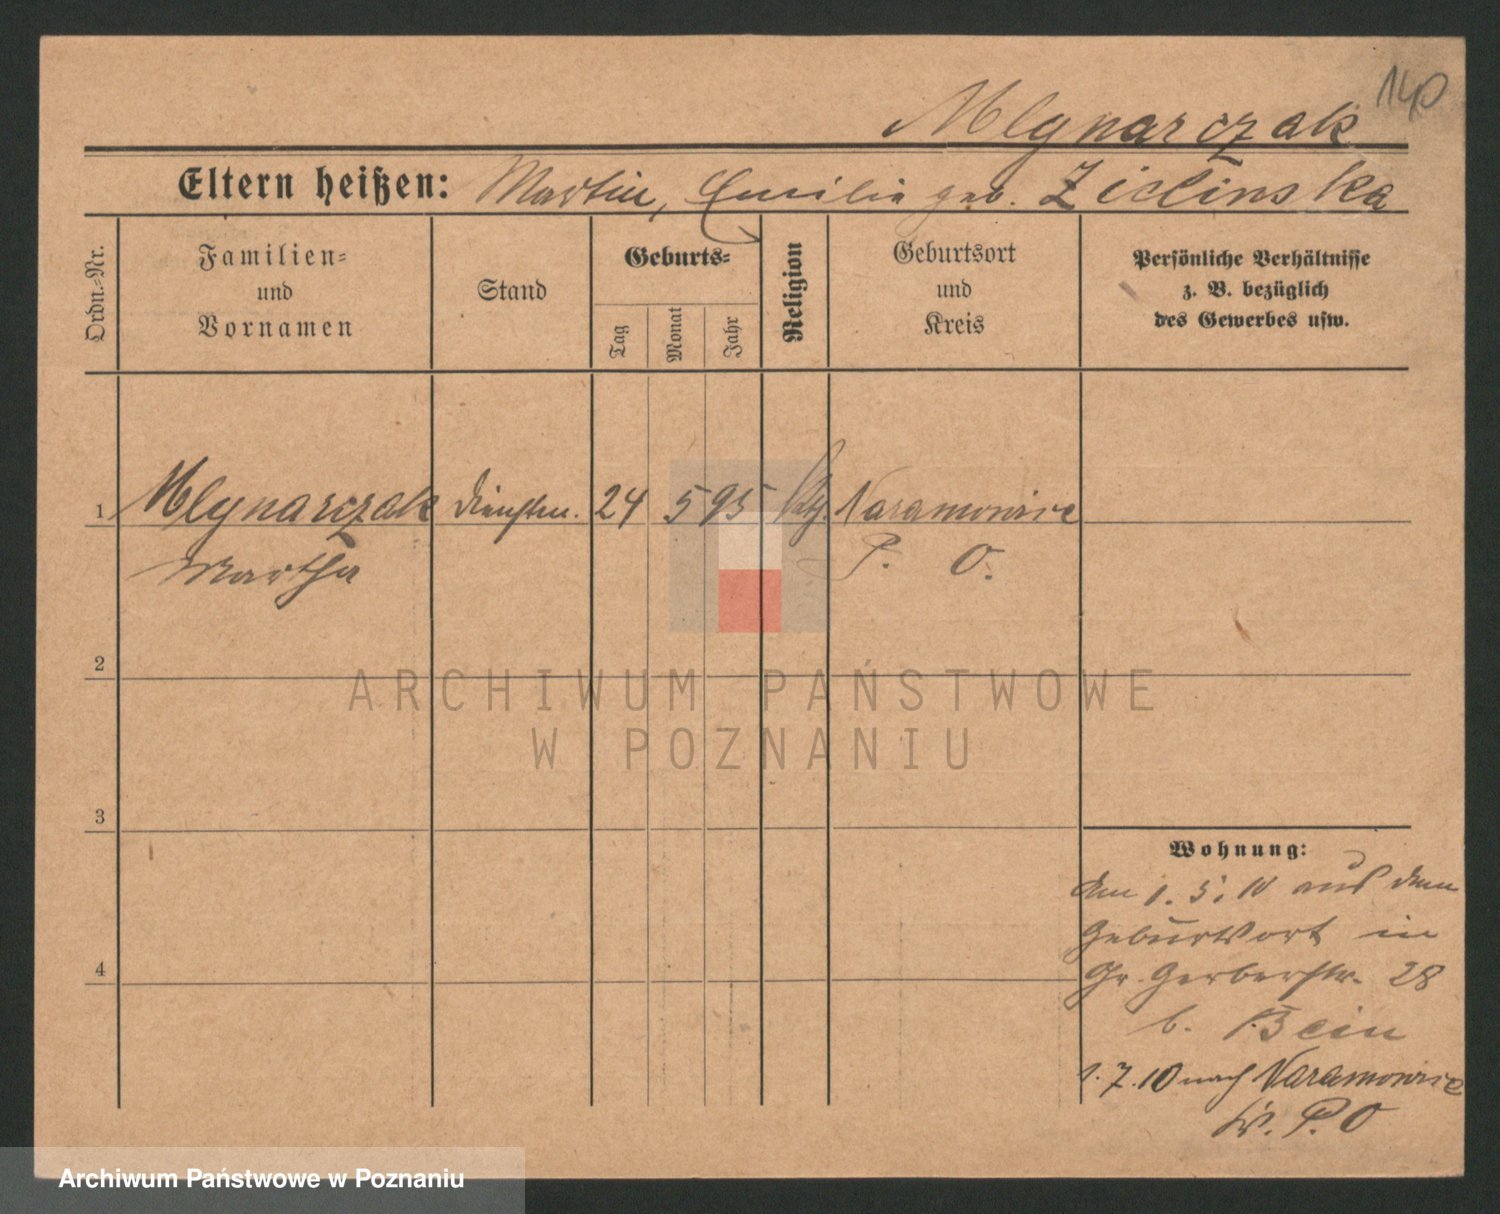 140
Mlynarczak
Eltern heißen: Martin, Emilie geb. Zielinska
Ordn.-Nr.
Familien-
und
Vornamen
Stand
Geburts-
Tag
Monat
Jahr
Religion
Geburtsort
und
Kreis
Persönliche Verhältnisse
z. B. bezüglich
des Gewerbes usw.
1 Mlynarczak Dienstm. 24 5 95 kth. Naramowice
Martha P. O.
2
3
4
Wohnung:
den 1. 5. 10 aus dem
Geburtsort in
Gr. Gerberstr. 28
b. Bein
1. 7. 10 nach Naramowice
Kr. P. O
ARCHIWUM PAŃSTWOWE
W POZNANIU
Archiwum Państwowe w Poznaniu